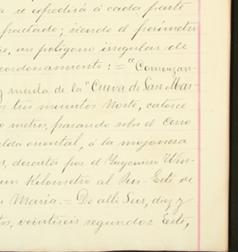 a se espedirá á cada parte
practado; siendo el perímetro
un polígono irregular de
cordonamiento: = "Comenzan-
y media de la "Cueva de San Mar-
tres minutos Norte, catorce
metros, pasando sobre el Cerro
oriental, á la mojonera
descrita por el Ingeniero
un Kilometro al Sur-Este de
María. = De allí Sur, diez y
veintiseis segundos Este,